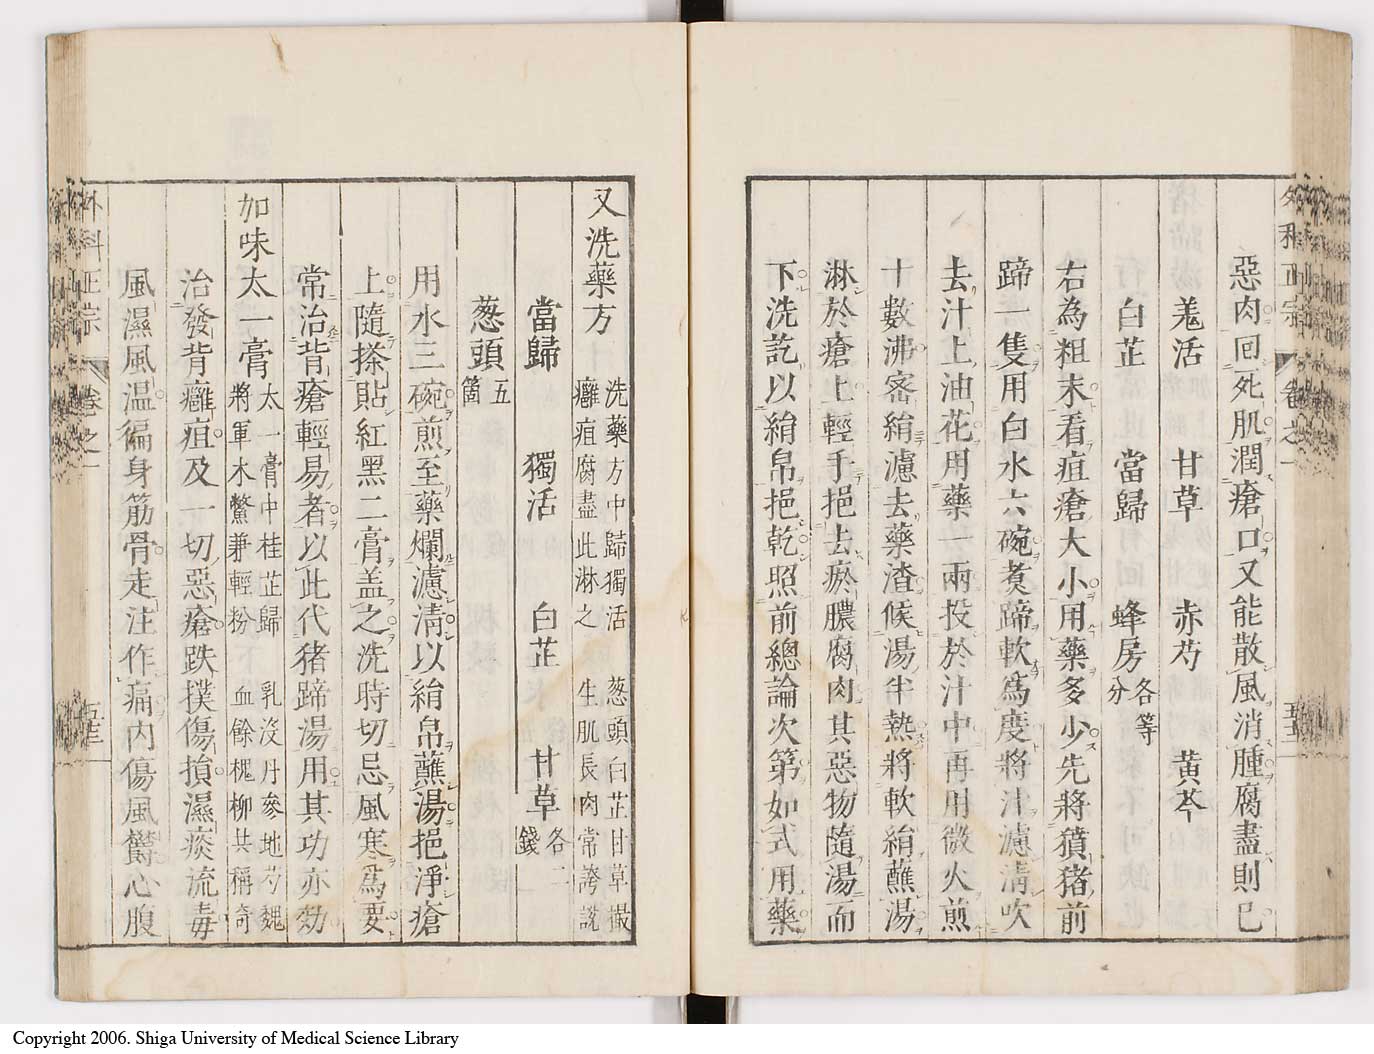 惡肉回死肌潤瘡口又能散風消腫腐盡則已
羗活 甘草 赤芍 黄芩
白芷 當歸 蜂房各等分
右為粗末看疽瘡大小用藥多少先將豶猪前
蹄一隻用白水六碗煑蹄軟為度將汁濾清吹
去汁上油花用藥一兩投於汁中再用微火煎
十數沸宻絹濾去藥渣候湯半熱將軟絹蘸湯
淋於瘡上輕手挹去瘀膿腐肉其惡物隨湯而
下洗訖以絹帛挹乾照前總論次第如式用藥
外科正宗 卷之一
又洗藥方 洗藥方中歸獨活 葱頭白芷甘草撮
癰疽腐盡此淋之 生肌長肉常誇說
當歸 獨活 白芷 甘草各二錢
葱頭五箇
用水三碗煎至藥爛濾清以絹帛蘸湯挹淨瘡
上隨搽貼紅黑二膏盖之洗時切忌風寒為要
常治背瘡輕易者以此代猪蹄湯用其功亦効
加味太一膏 太一膏中桂芷歸 乳没丹參地芍魏
將軍木鱉兼輕扮 血餘槐柳共稱奇
治發背癰疽及一切惡瘡跌撲傷損濕痰流毒
風濕風温徧身筋骨走注作痛内傷風鬱心腹
外科正宗 卷之一
Copyright 2006. Shiga University of Medical Science Library